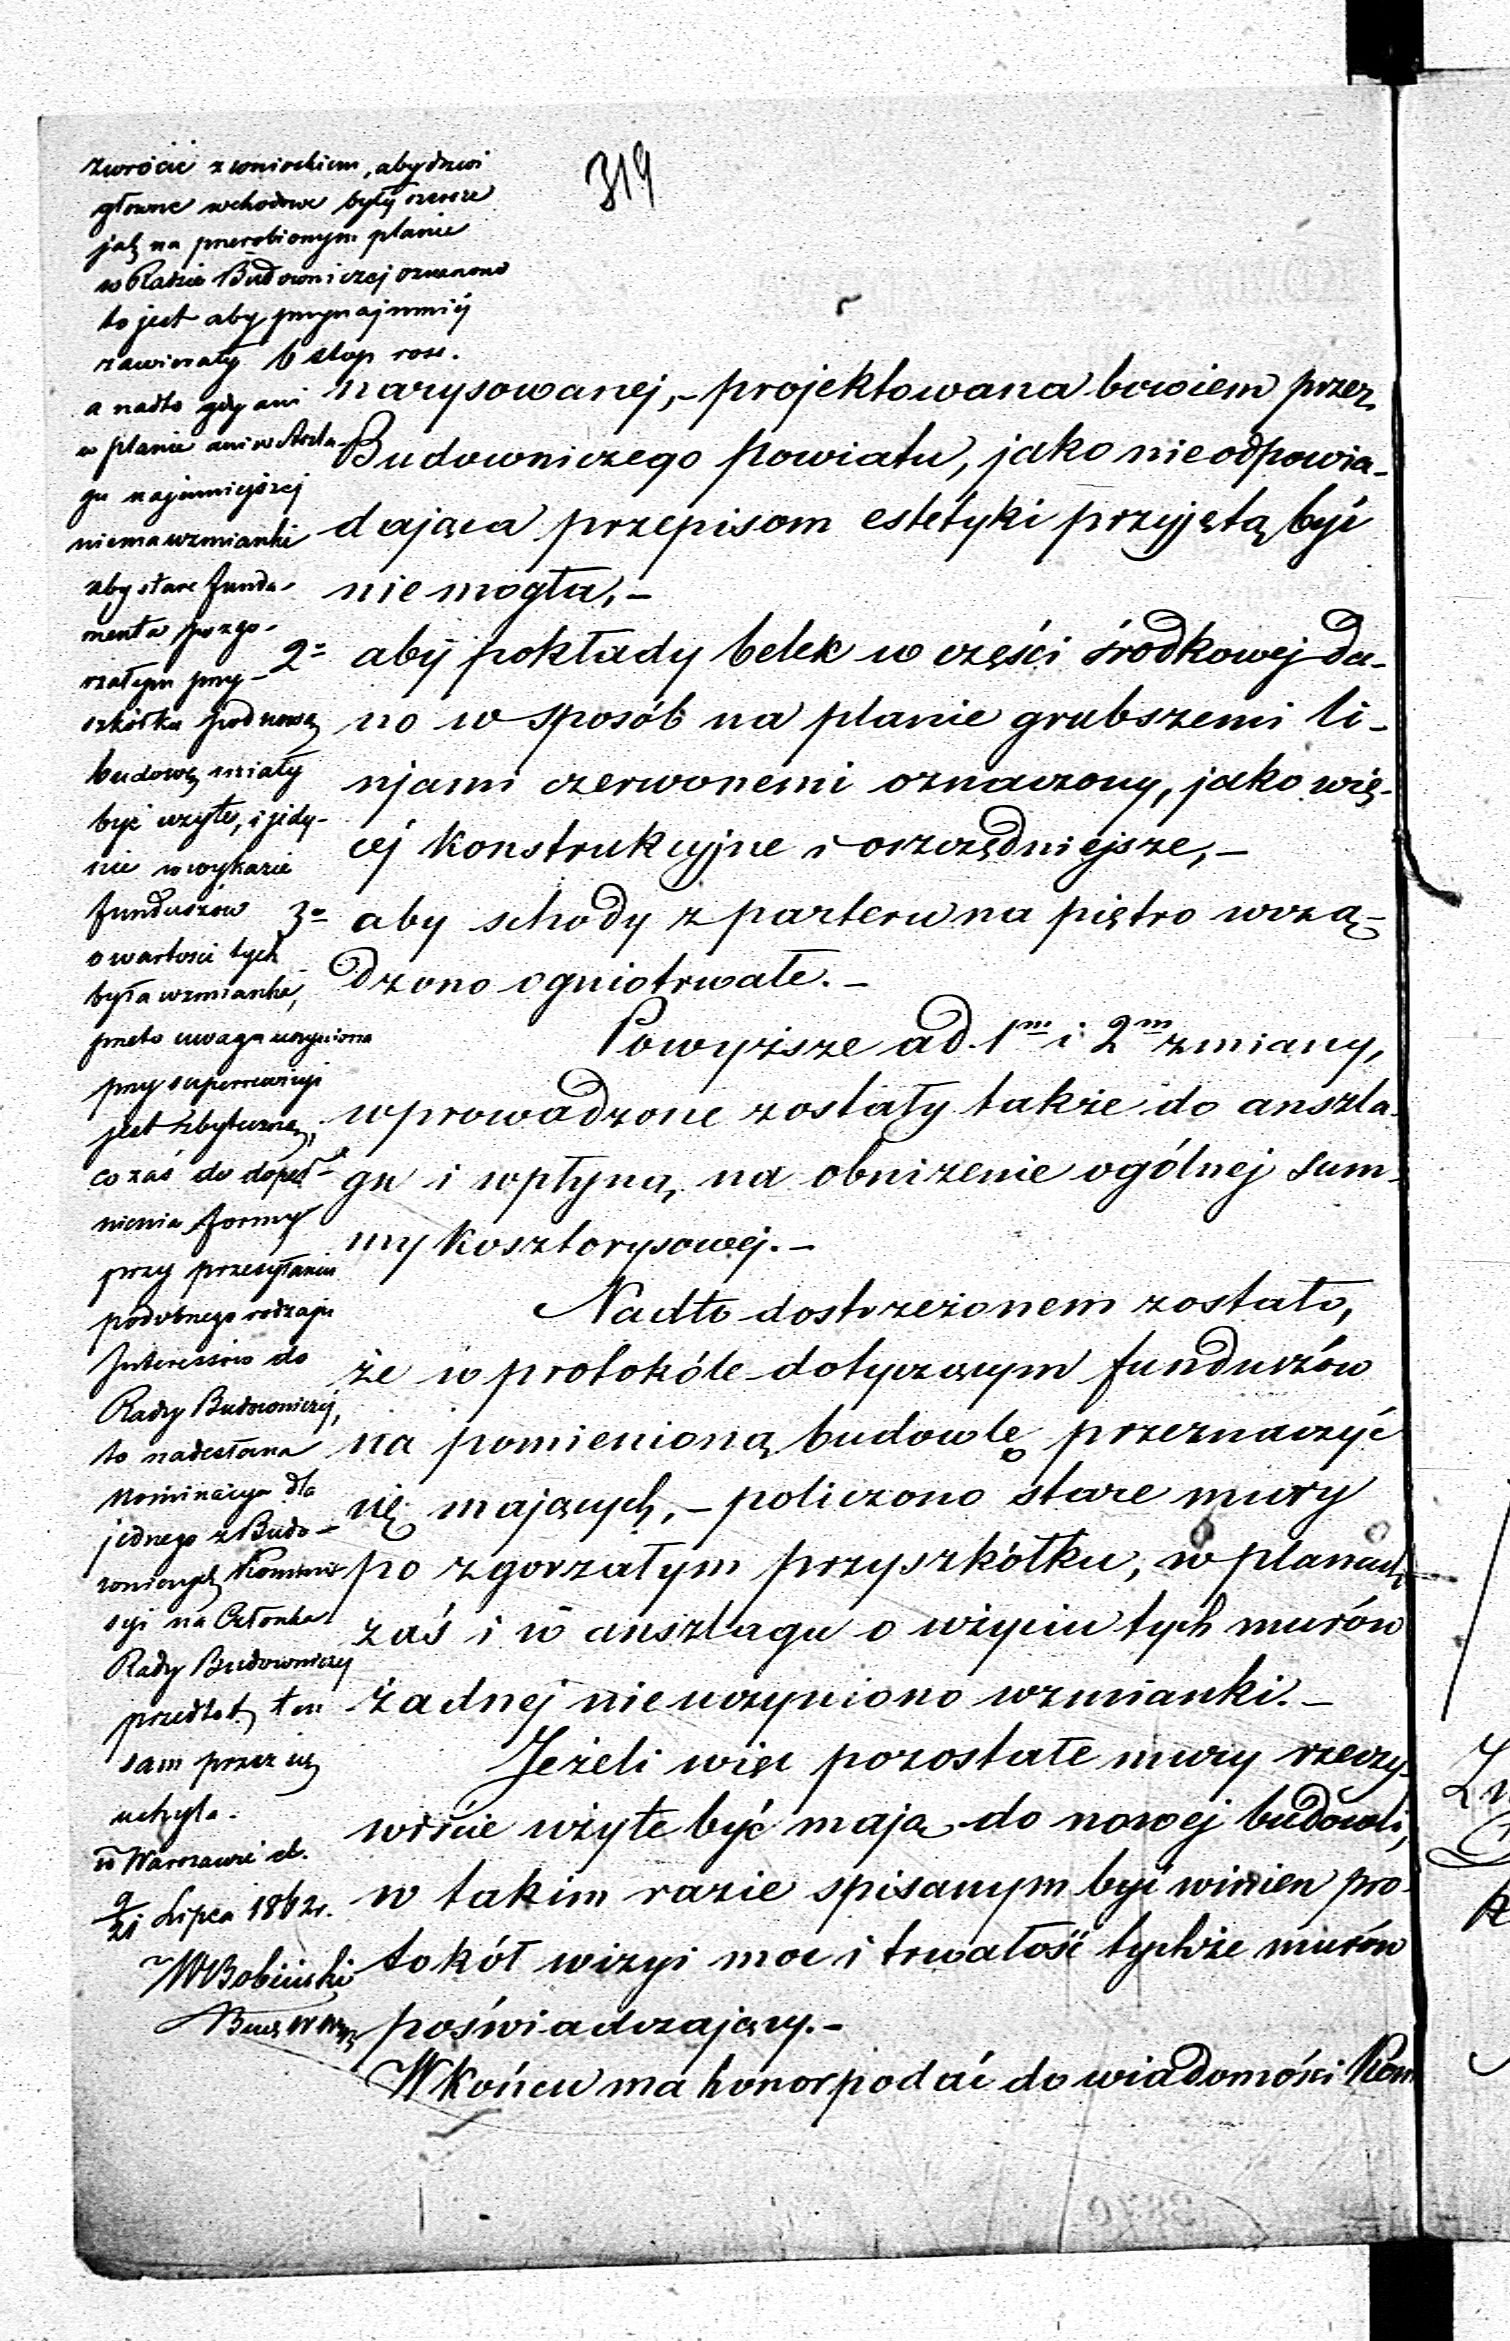 319
zwrócić z wnioskiem, aby drzwi
główne wchodowe były szersze
jak na przerobionym planie
w Radzie Budowniczej oznaczono
to jest aby przynajmniej
zawierały 6 stop ross.
a nadto gdy ani
w planie ani w Anszla-
gu najmniejszej
niema wzmianki
aby stare funda-
menta po zgo-
rzałym przy-
szkółku pod nową
budowę miały
być użyte, i jedy-
nie w wykazie
funduszów
o wartości tych
była wzmianka,
przeto uwaga uczyniona
przy superrewizyi
jest zbyteczną;
co zaś do dopeł-
nienia formy
przy przesyłaniu
podobnego rodzaju
Interessów do
Rady Budowniczej,
to nadesłana
Nominacya dla
jednego z Budo-
wniczych Kommis-
syi na Członka
Rady Budowniczej
przedłot. ten
sam przez się
uchyla.
w Warszawie d.
9/21 Lipca 1862 r.
W Bobiński
narysowanej,- projektowana bowiem przez
Budowniczego Powiatu, jako nieodpowia-
dająca przepisom estetyki przyjętą być
nie mogła,-
2= aby pokłady belek w części środkowej da-
no w sposób na planie grubszemi li-
njami czerwonemi oznaczony, jako wię-
cej konstrukcyjne i oszczędniejsze,-
3= aby schody z parteru na piętro urzą-
dzono ogniotrwałe.-
Powyższe ad. 1m i 2m zmiany,
wprowadzone zostały także do anszla-
gu i wpłyną, na obniżenie ogólnej sum-
my kosztorysowej.-
Nadto dostrzeżonem zostało,
że w protokóle dotyczącym funduszów
na pomienioną budowlę przeznaczyć
się mających,- policzono stare mury
po zgorzałym przyszkółku, w planach
zaś i w anszlagu o użyciu tych murów
żadnej nie uczyniono wzmianki.-
Jeżeli więc pozostałe mury rzeczy-
wiście użyte być mają do nowej budowli,
w takim razie spisanym być winien pro-
tokół wizyi moc i trwałość tychże murów
poświadczający.-
W końcu ma honor podać do wiadomości Kom